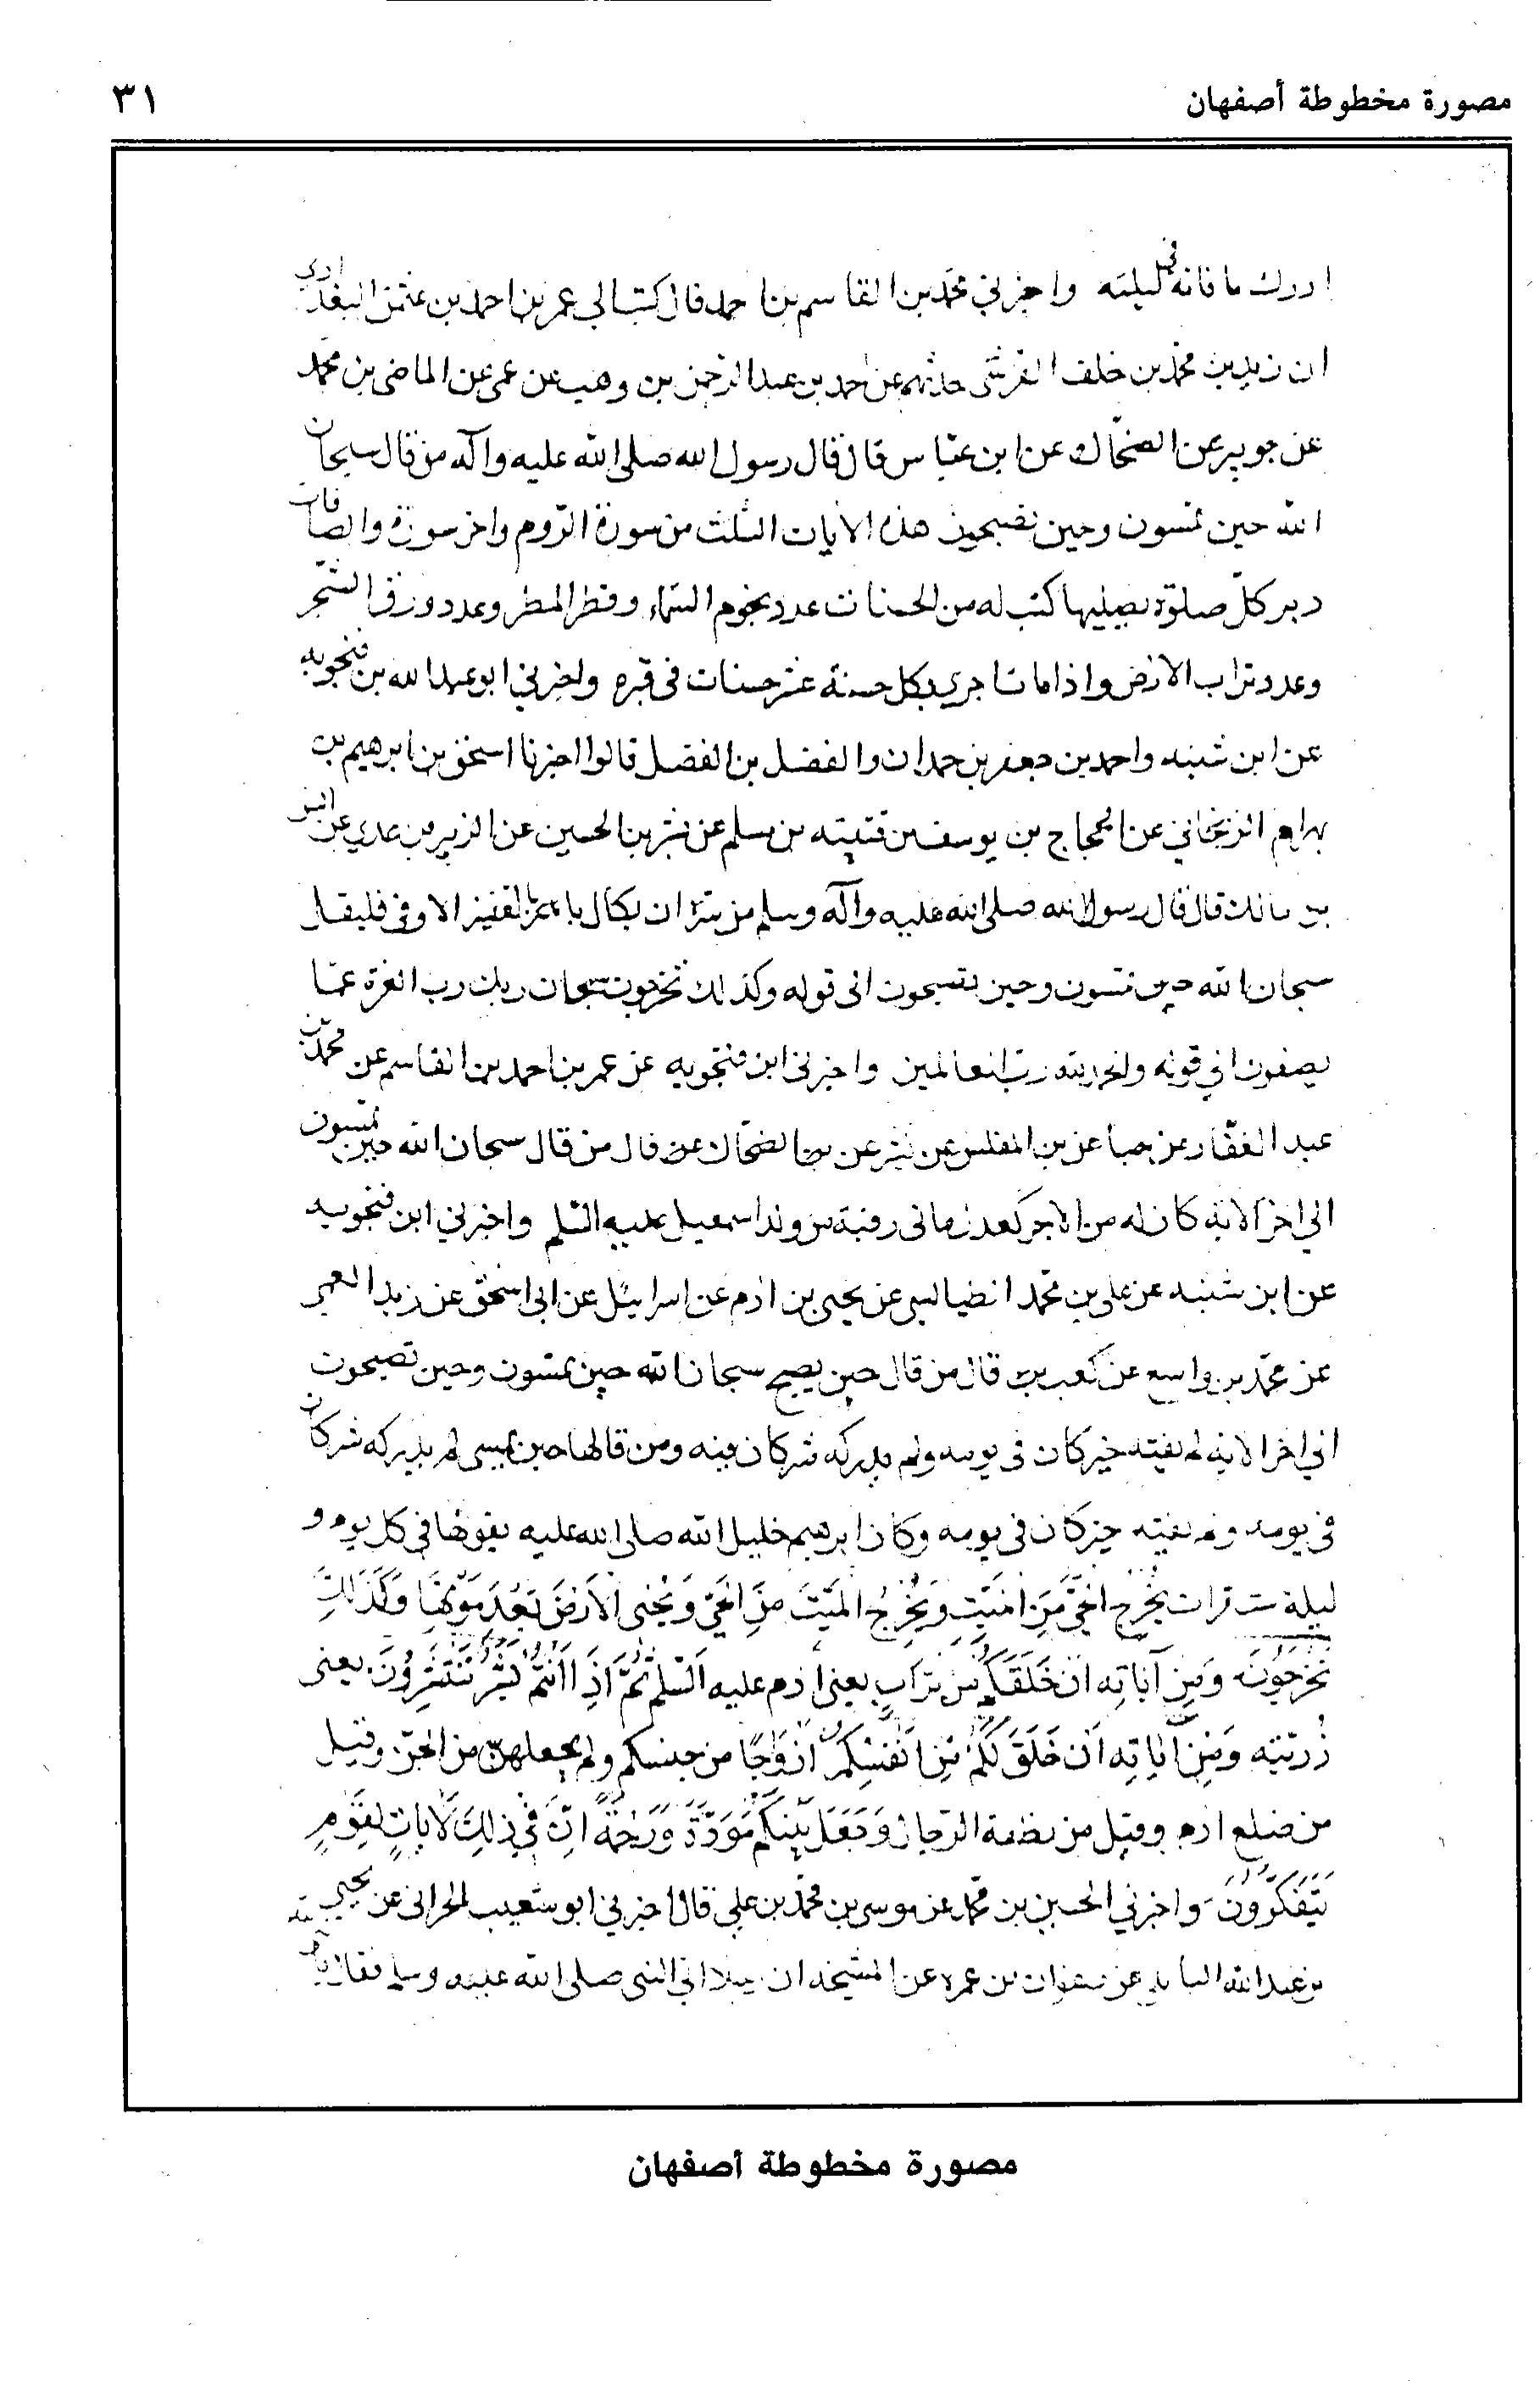 مصورة مخطوطة أصفهان
٣١
ادرك ما فاته في ليلته واخبرني محمد بن القاسم بن احمد قال كتب الي عمر بن احمد بن عثمن البغدادي
ان زيد بن محمد بن خلف القرشي حدثهم عن احمد بن عبد الرحمن بن وهب عن عمي عن الماضي بن محمد
عن جويبر عن الضحّاك عن ابن عبّاس قال قال رسول الله صلى الله عليه وآله من قال سبحان
الله حين تمسون وحين تصبحون هذه الايات الثلث من سورة الرّوم واخر سورة والصافات
دبر كلّ صلوة يصليها كتب له من الحسنات عدد نجوم السّماء وقطر المطر وعدد ورق الشّجر
وعدد تراب الارض واذا مات اجري بكل حسنة عشر حسنات في قبره واخبرني ابو عبد الله بن فنجويه
عن ابن شنبه واحمد بن جعفر بن حمدان والفضل بن الفضل قالوا اخبرنا اسحق بن ابرهيم بن
بهرام الزنجاني عن الحجاج بن يوسف بن قتيبة بن مسلم عن بشر بن الحسين عن الزبير بن عدي عن انس
بن مالك قال قال رسول الله صلى الله عليه وآله وسلم من سرّه ان يكال با القفيز الاوفى فليقل
سبحان الله حين تمسون وحين تصبحون الى قوله وكذلك تخرجون سبحان ربك رب العزة عمّا
يصفون الى قوله والحمد لله ربّ العالمين واخبرني ابن فنجويه عن عمر بن احمد بن القاسم عن محمّد بن
عبد الغفّار عن بن المغلس عن بشر عن الضحّاك قال من قال سبحان الله حين تمسون
الى اخر الاية كان له من الاجر كعدل ماتى رقبة من ولد اسمعيل عليه السّلم واخبرني ابن فنجويه
عن ابن شنبه عن علي بن محمّد الطيالسي عن يحيى بن ادم عن اسرائيل عن ابي اسحق عن زيد العمي
عن محمّد بن واسع عن كعب قال من قال حين يصبح سبحان الله حين تمسون وحين تصبحون
الى اخر الاية لم يفته خير كان في يومه ولم يدركه شر كان فيه ومن قالها حين يمسي لم يدركه شر كان
في يومه ولم يفته خير كان في يومه وكان ابرهيم خليل الله صلى الله عليه يقولها في كل يوم و
ليلة ست مرات يُخْرِجُ الحَيَّ مِنَ المَيّتِ وَيُخْرِجُ المَيّتَ مِنَ الحَيّ وَيُحْيِي الاَرضَ بَعْدَ مَوْتِهَا وَكَذَلِكَ
تُخْرَجُونَ وَمِنْ آياتِه اَنْ خَلَقَكُم مِن تُرَابٍ يعني ادم عليه السّلم ثُمَّ اذَا اَنْتُم بَشَرٌ تَنْتَشِرُونَ يعني
ذرّيّته وَمِنْ اٰيَاتِه اَن خَلَقَ لَكُم مِنْ اَنْفُسِكُم اَزْوَاجًا من جنسكم ولم يجعلهنّ من الجنّ وقيل
من ضلع ادم وقيل من نطفة الرّجال وَجَعَلَ بَيْنَكُم مَوَدَّةً وَرَحْمَةً اِنَّ في ذلِكَ لَاٰيَاتٍ لِقَومٍ
يَتَفَكَّرُونَ واخبرني الحسين بن محمّد عن موسى بن محمّد بن علي قال اخبرني ابو شعيب الحراني عن يحيى
بن عبد الله البابلي عن صفوان بن عمرو عن المشيخة ان رجلا اتى النبي صلى الله عليه وسلم فقال يا
مصورة مخطوطة أصفهان